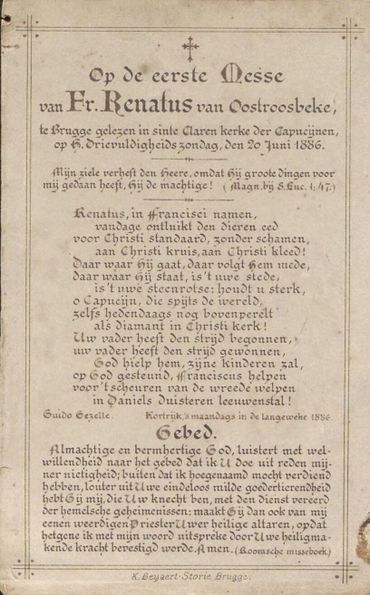 Op de eerste Messe
van Fr. Renatus van Oostroosbeke,
te Brugge gelezen in sinte Claren kerke der Capucijnen,
op H. Drievuldigheids zondag, den 20 Juni 1886.
Mijn ziele verheft den Heere, omdat Hij groote dingen voor
mij gedaan heeft, Hij de machtige! (Magn. bij S. Luc. 1:47.)
Renatus, in Francisci namen,
vandage ontluikt den dieren eed
voor Christi standaard, zonder schamen,
aan Christi kruis, aan Christi kleed!
Daar waar Hij gaat, daar volgt Hem mede,
daar waar Hij staat, is 't uwe stede,
is 't uwe steenrotse: houdt u sterk,
o Capucijn, die spijts de wereld,
zelfs hedendaags nog bovenperelt
als diamant in Christi kerk!
Uw vader heeft den strijd begonnen,
uw vader heeft den strijd gewonnen,
God hielp hem, zijne kinderen zal,
op God gesteund, Franciscus helpen
voor 't scheuren van de wreede welpen
in Daniels duisteren leeuwenstal!
Guido Gezelle. Kortrijk, 's maandags in de langeweke 1886.
Gebed.
Almachtige en bermhertige God, luistert met wel-
willendheid naar het gebed dat ik U doe uit reden mij-
ner nietigheid; buiten dat ik hoegenaamd mocht verdiend
hebben, louter uit Uwe eindeloos milde goedertierendheid
hebt Gij mij, die Uw knecht ben, met den dienst vereerd
der hemelsche geheimenissen: maakt Gij dan ook van mij
eenen weerdigen Priester Uwer heilige altaren, opdat
hetgene ik met mijn woord uitspreke door Uwe heiligma-
kende kracht bevestigd worde. Amen. (Roomsche misseboek)
K. Beyaert-Storie, Brugge.